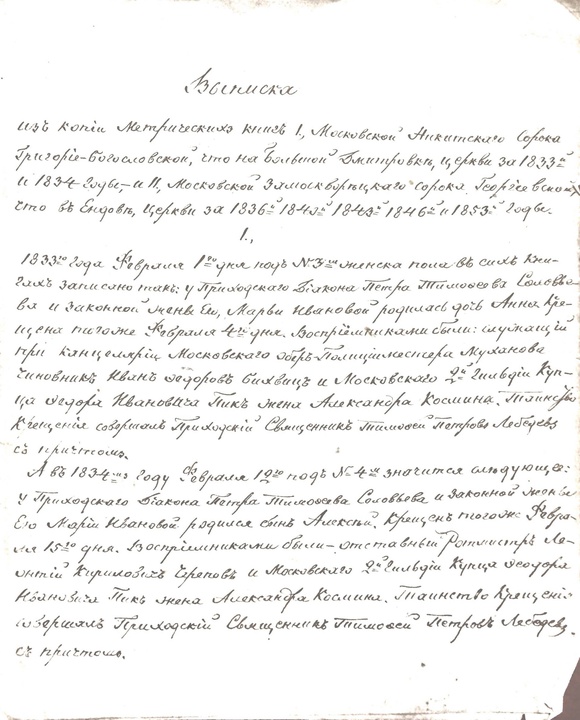 Выписка
изъ копіи Метрическихъ книгъ I., Московской Никитскаго Сорока
Григоріе-Богословской, что на Большой Дмитровкѣ, церкви за 1833й
и 1834 годы,- и II, Московской Замоскворѣцкаго сорока Георгіевской,
что въ Ендовѣ, Церкви за 1836й 1841й 1843й 1846й и 1853й годы.
I.,
1833го года Февраля 1го дня подъ № 3м женска пола въ сихъ кни-
гахъ записано такъ: у Приходскаго Діакона Петра Тимоѳеева Соловье-
ва и законной жены Его, Марьи Ивановой родилась дочь Анна Кре-
щена тогоже Февраля 4го дня. Воспріемниками были: служащій
при канцеляріи Московскаго Оберъ-Полиціймейстера Муханова
чиновникъ Иванъ Ѳедоровъ и Московскаго 2й Гильдіи Куп-
ца Ѳедора Ивановича Пикъ жена Александра Космина. Таинство
Крещенія совершалъ Приходскій Священникъ Тимоѳей Петровъ Лебедевъ
съ причтомъ.
А въ 1834мъ году Февраля 12го подъ № 4м значится слѣдующее:
у Приходскаго Діакона Петра Тимоѳеева Соловьева и законной жены
Его Маріи Ивановой родился сынъ Алексѣй. Крещенъ тогожъ Февра-
ля 15го дня. Воспріемниками были- отставный Ротмистръ Ле-
онтій Кириловичъ Череповъ и Московскаго 2й Гильдіи Купца Ѳедора
Ивановича Пикъ жена Александра Космина. Таинство Крещенія
совершалъ Приходскій Священникъ Тимоѳей Петровъ Лебедевъ
съ причтомъ.